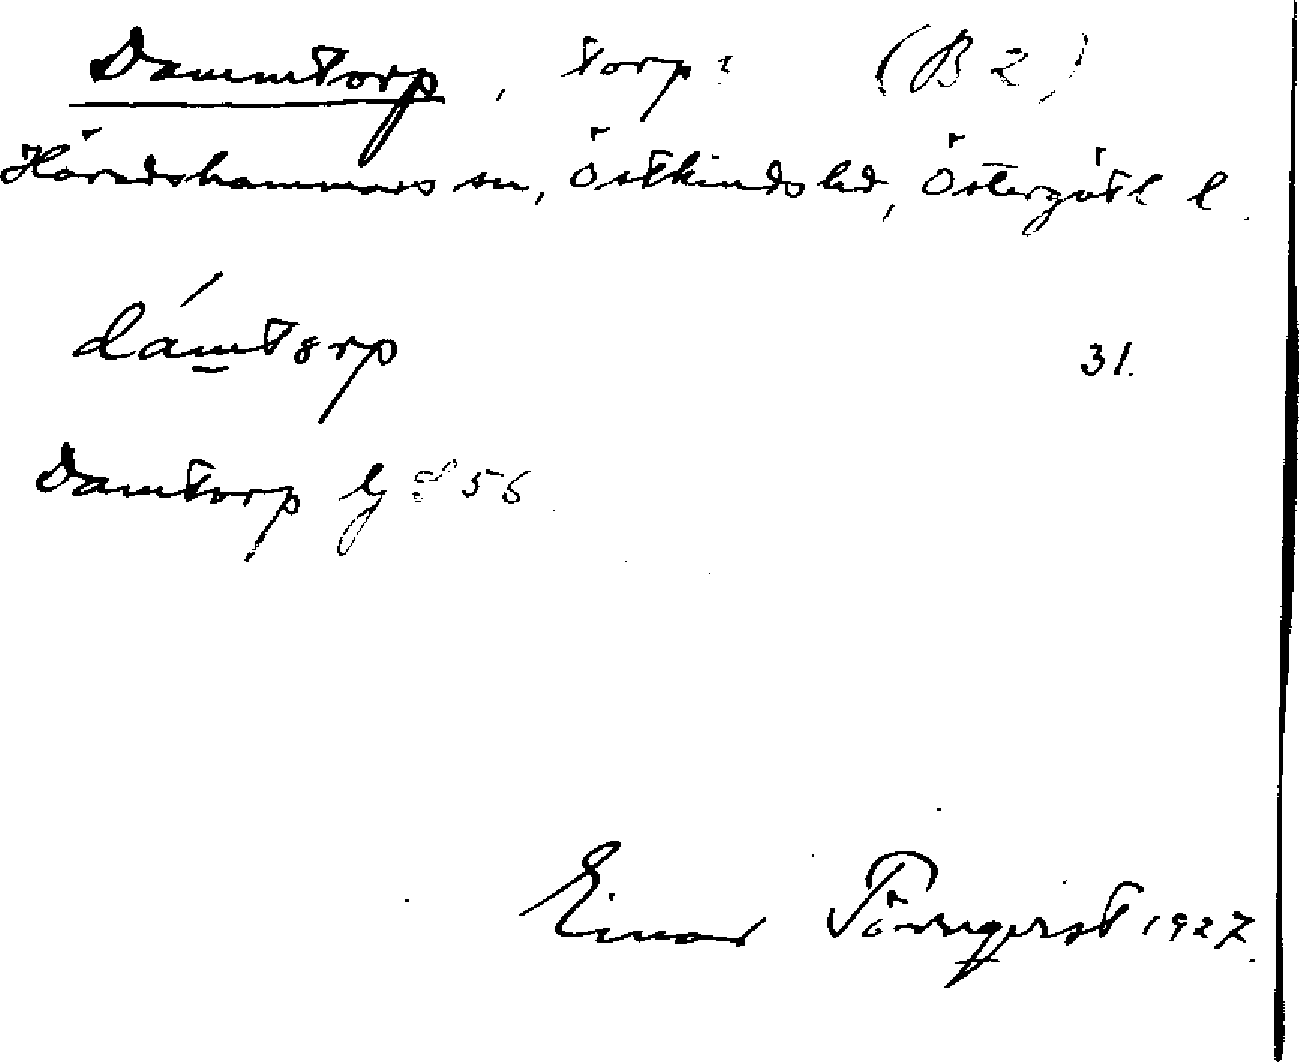 Dammtorp, torp: (B 2)
Häradshammars sn, Östkinds hd, Östergötl l.
dámtorp 31.
Damtorp 56
Einar Törnqvist 1927.